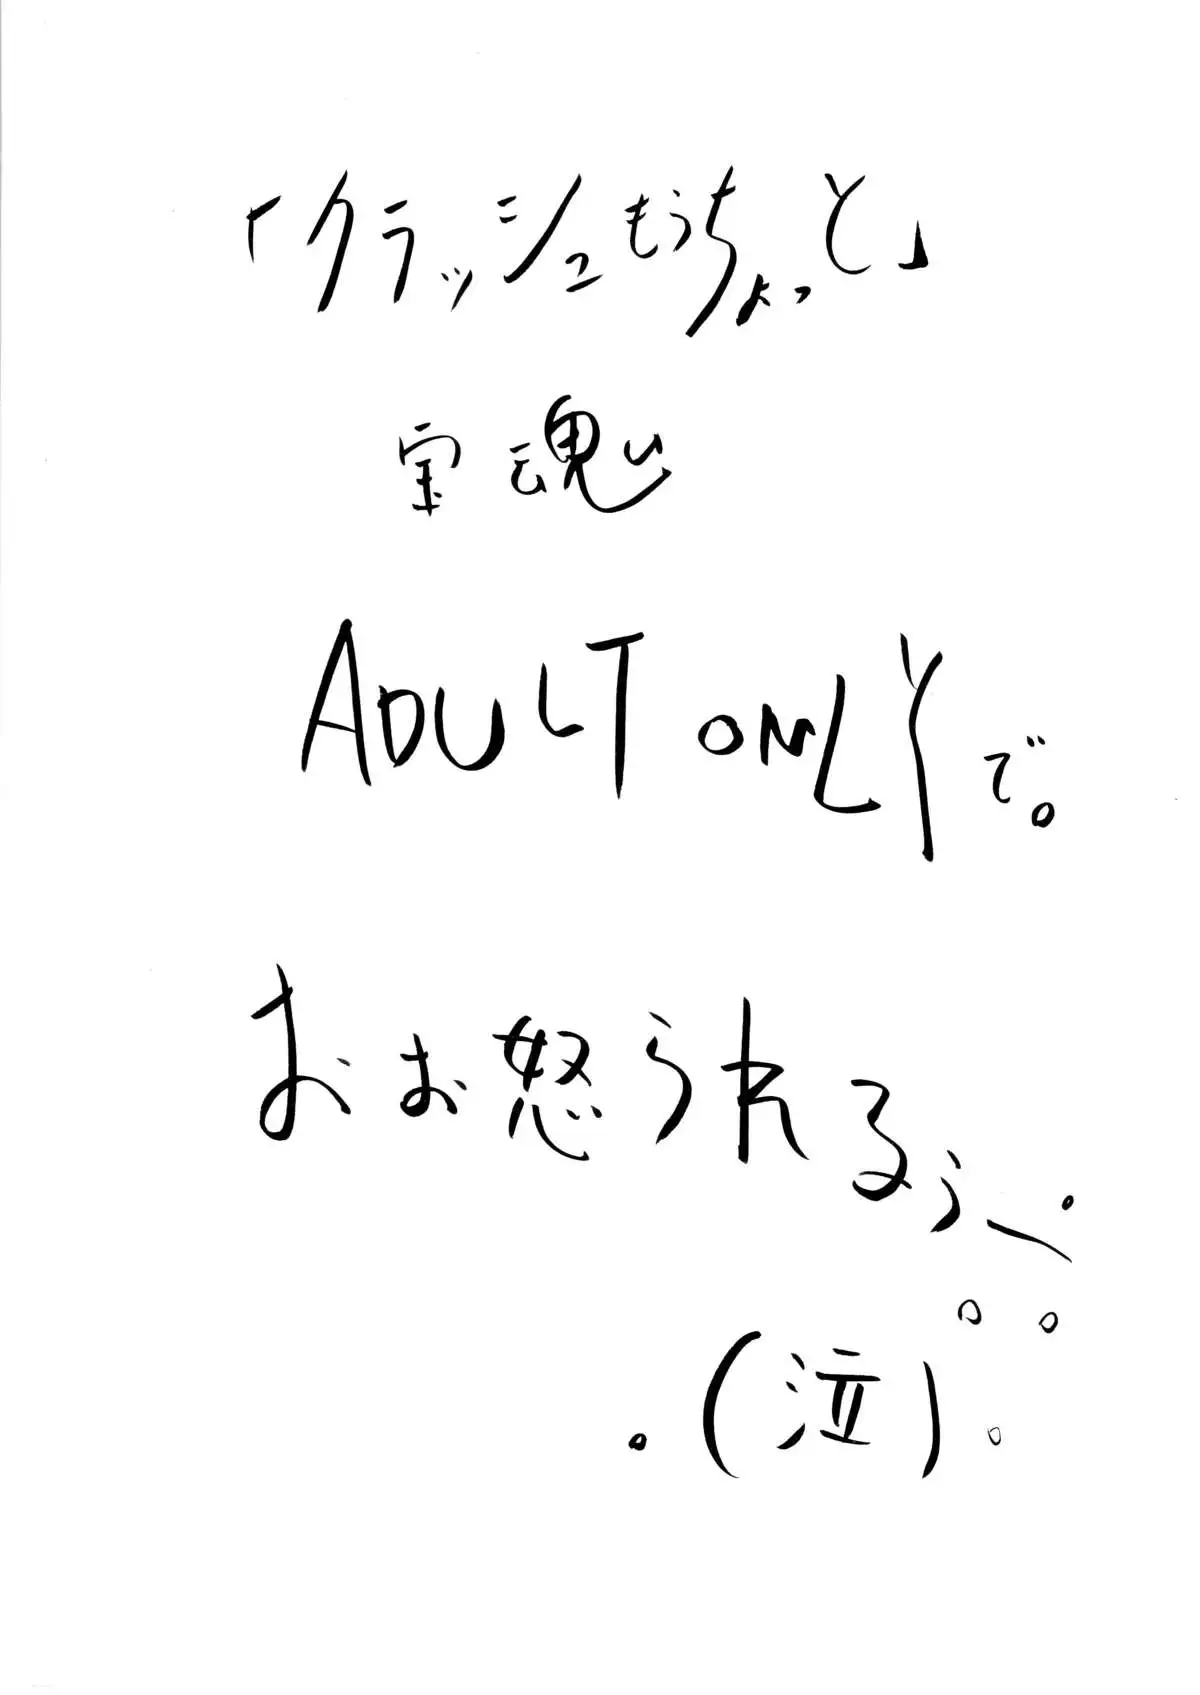 「クラッシュもうちょっと」
宝魂
ADULT ONLYで。
おお怒られるぅー。
。(泣)。